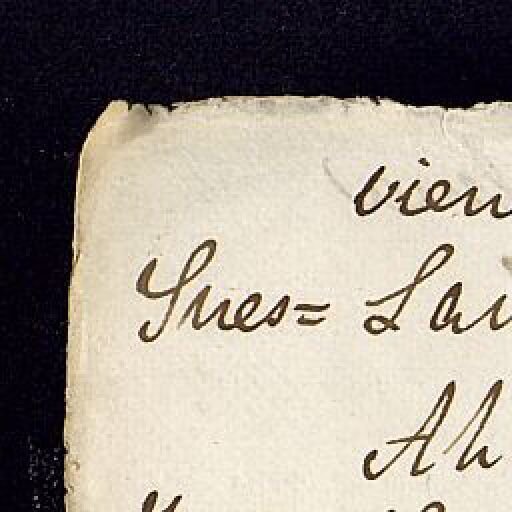 vien
Ines= Lau
Ah